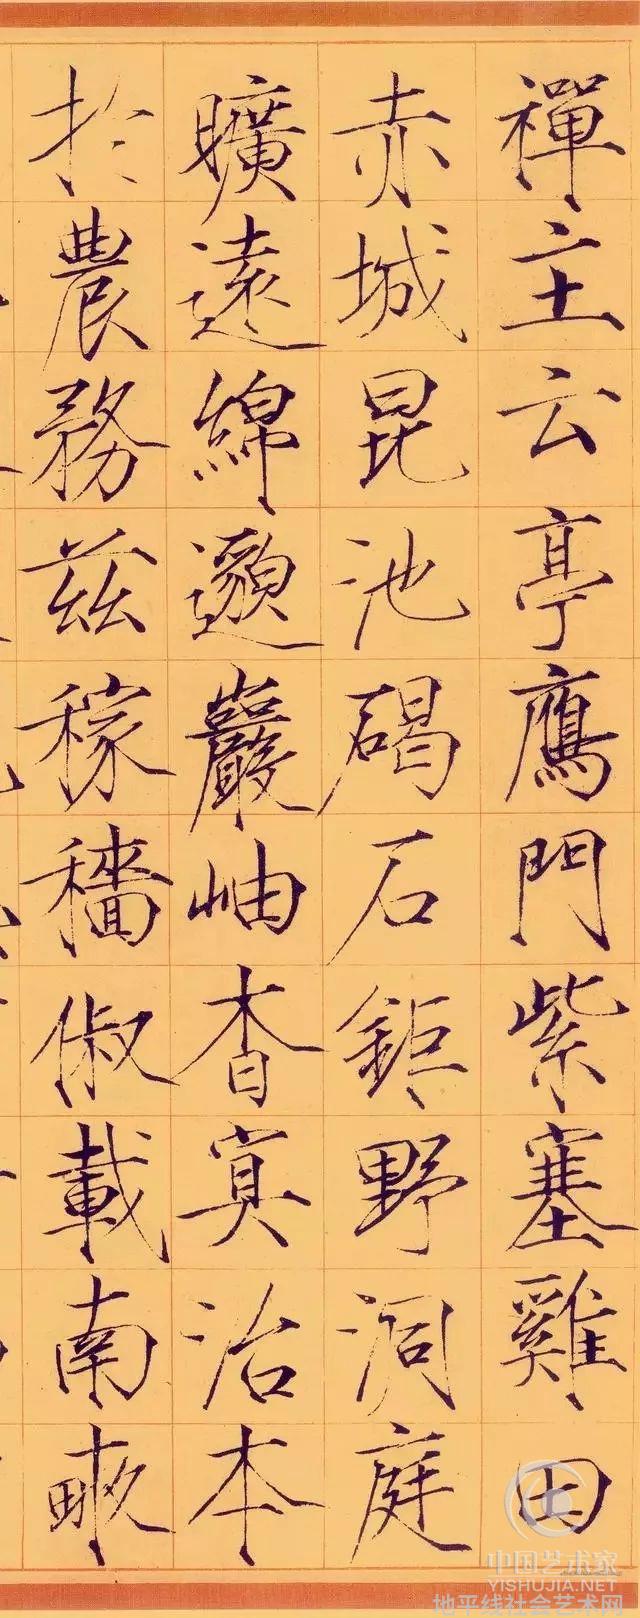 禪主云亭鴈門紫塞雞田
赤城昆池碣石鉅野洞庭
曠遠綿邈巖岫杳冥治本
於農務茲稼穡俶載南畝
中国艺术家
YISHUJIA.NET
地平线社会艺术网